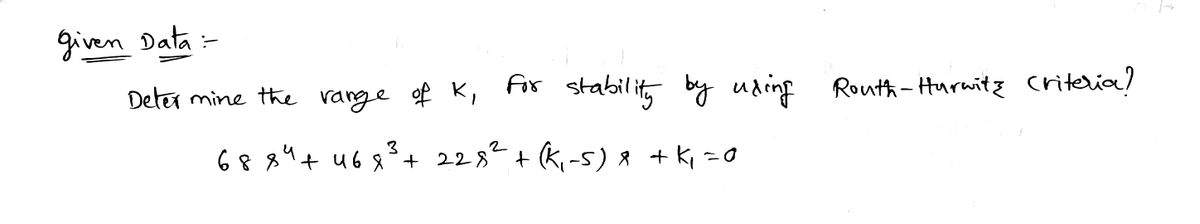 Given Data :-
Determine the range of K₁ for stability by using Routh-Hurwitz criteria?
68 s⁴ + 46 s³ + 22 s² + (K₁-5) s + K₁ = 0